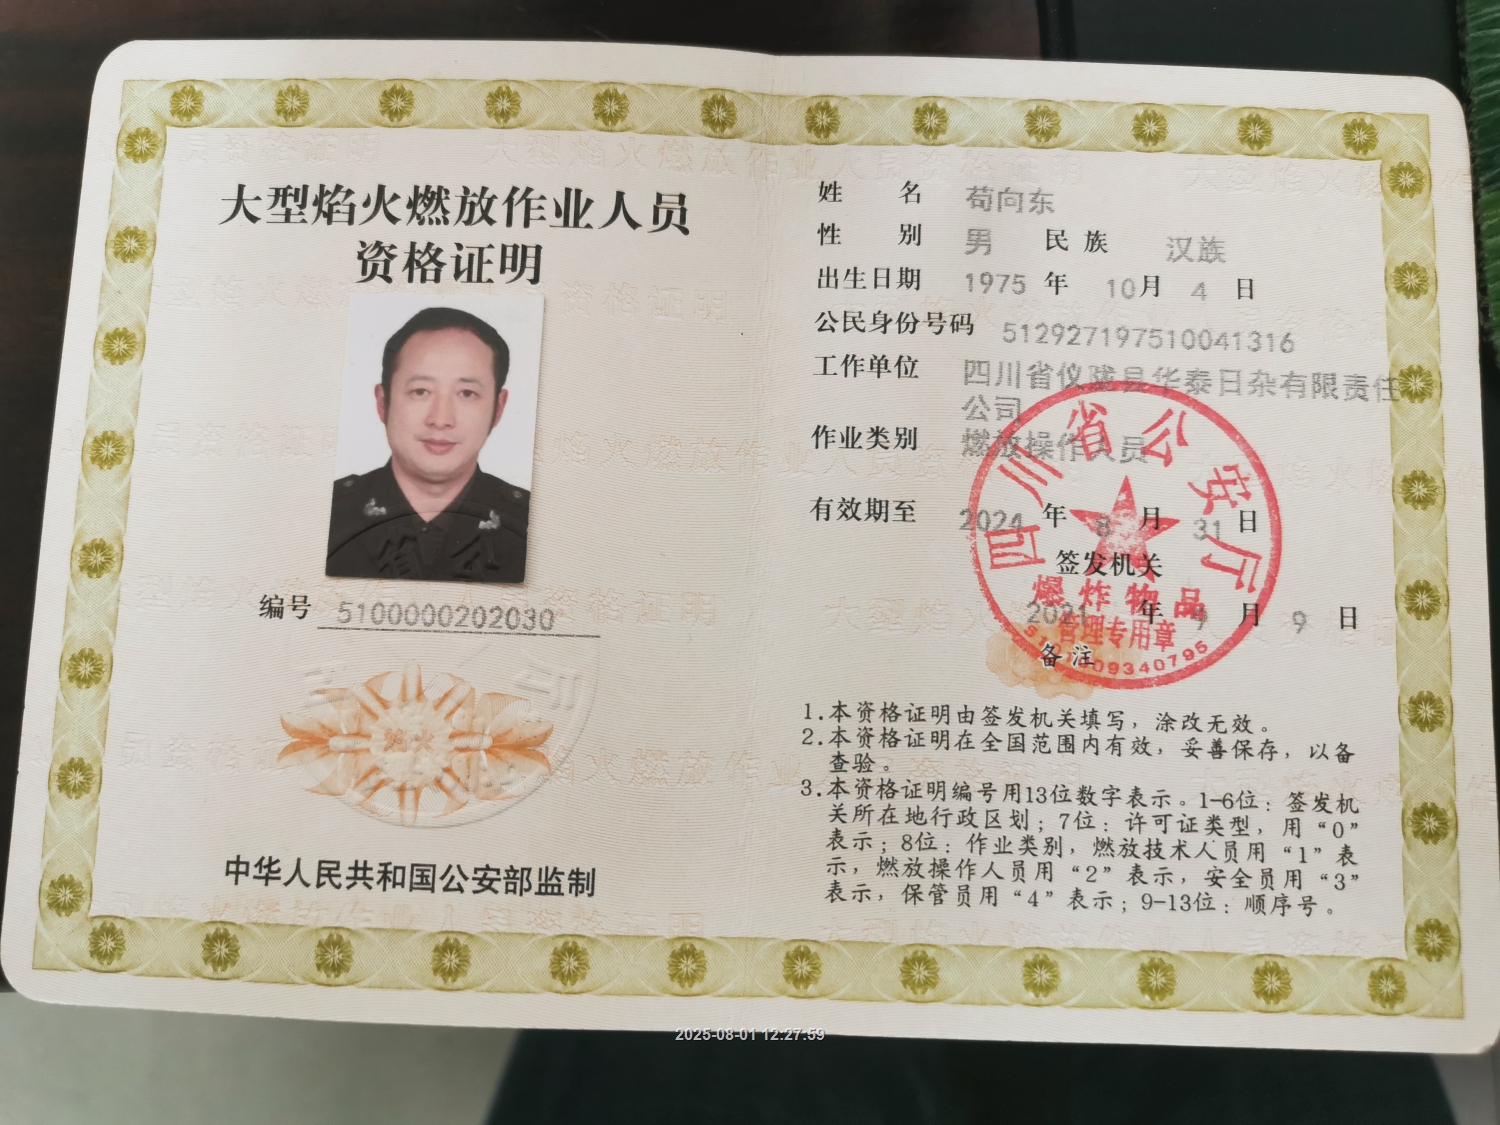 大型焰火燃放作业人员
资格证明
编号 5100000202030
中华人民共和国公安部监制
姓名 苟向东
性别 男 民族 汉族
出生日期 1975 年 10 月 4 日
公民身份号码 512927197510041316
工作单位 四川省仪陇县华泰日杂有限责任
公司
作业类别 燃放操作人员
有效期至 2024 年 8 月 31 日
签发机关
2021 年 9 月 9 日
四川省公安厅
爆炸物品
管理专用章
备注
1.本资格证明由签发机关填写，涂改无效。
2.本资格证明在全国范围内有效，妥善保存，以备
查验。
3.本资格证明编号用13位数字表示。1-6位：签发机
关所在地行政区划；7位：许可证类型，用“0”
表示；8位：作业类别，燃放技术人员用“1”表
示，燃放操作人员用“2”表示，安全员用“3”
表示，保管员用“4”表示；9-13位：顺序号。
2025-08-01 12:27:59